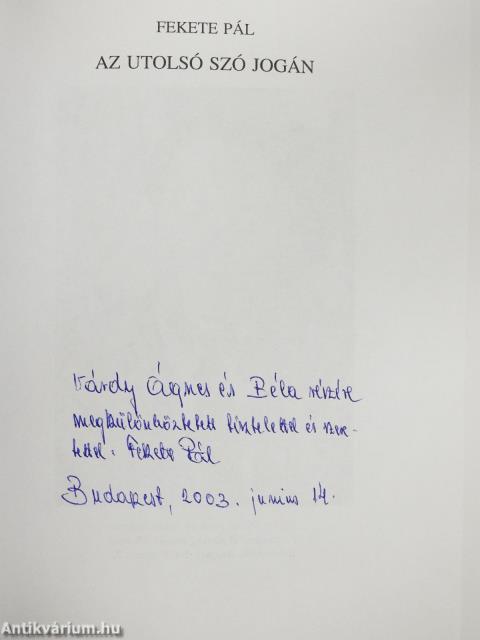 FEKETE PÁL
AZ UTOLSÓ SZÓ JOGÁN
Várdy Ágnes és Béla részére
megkülönböztetett tisztelettel és szere-
tettel: Fekete Pál
Budapest, 2003. junius 14.
Antikvárium.hu